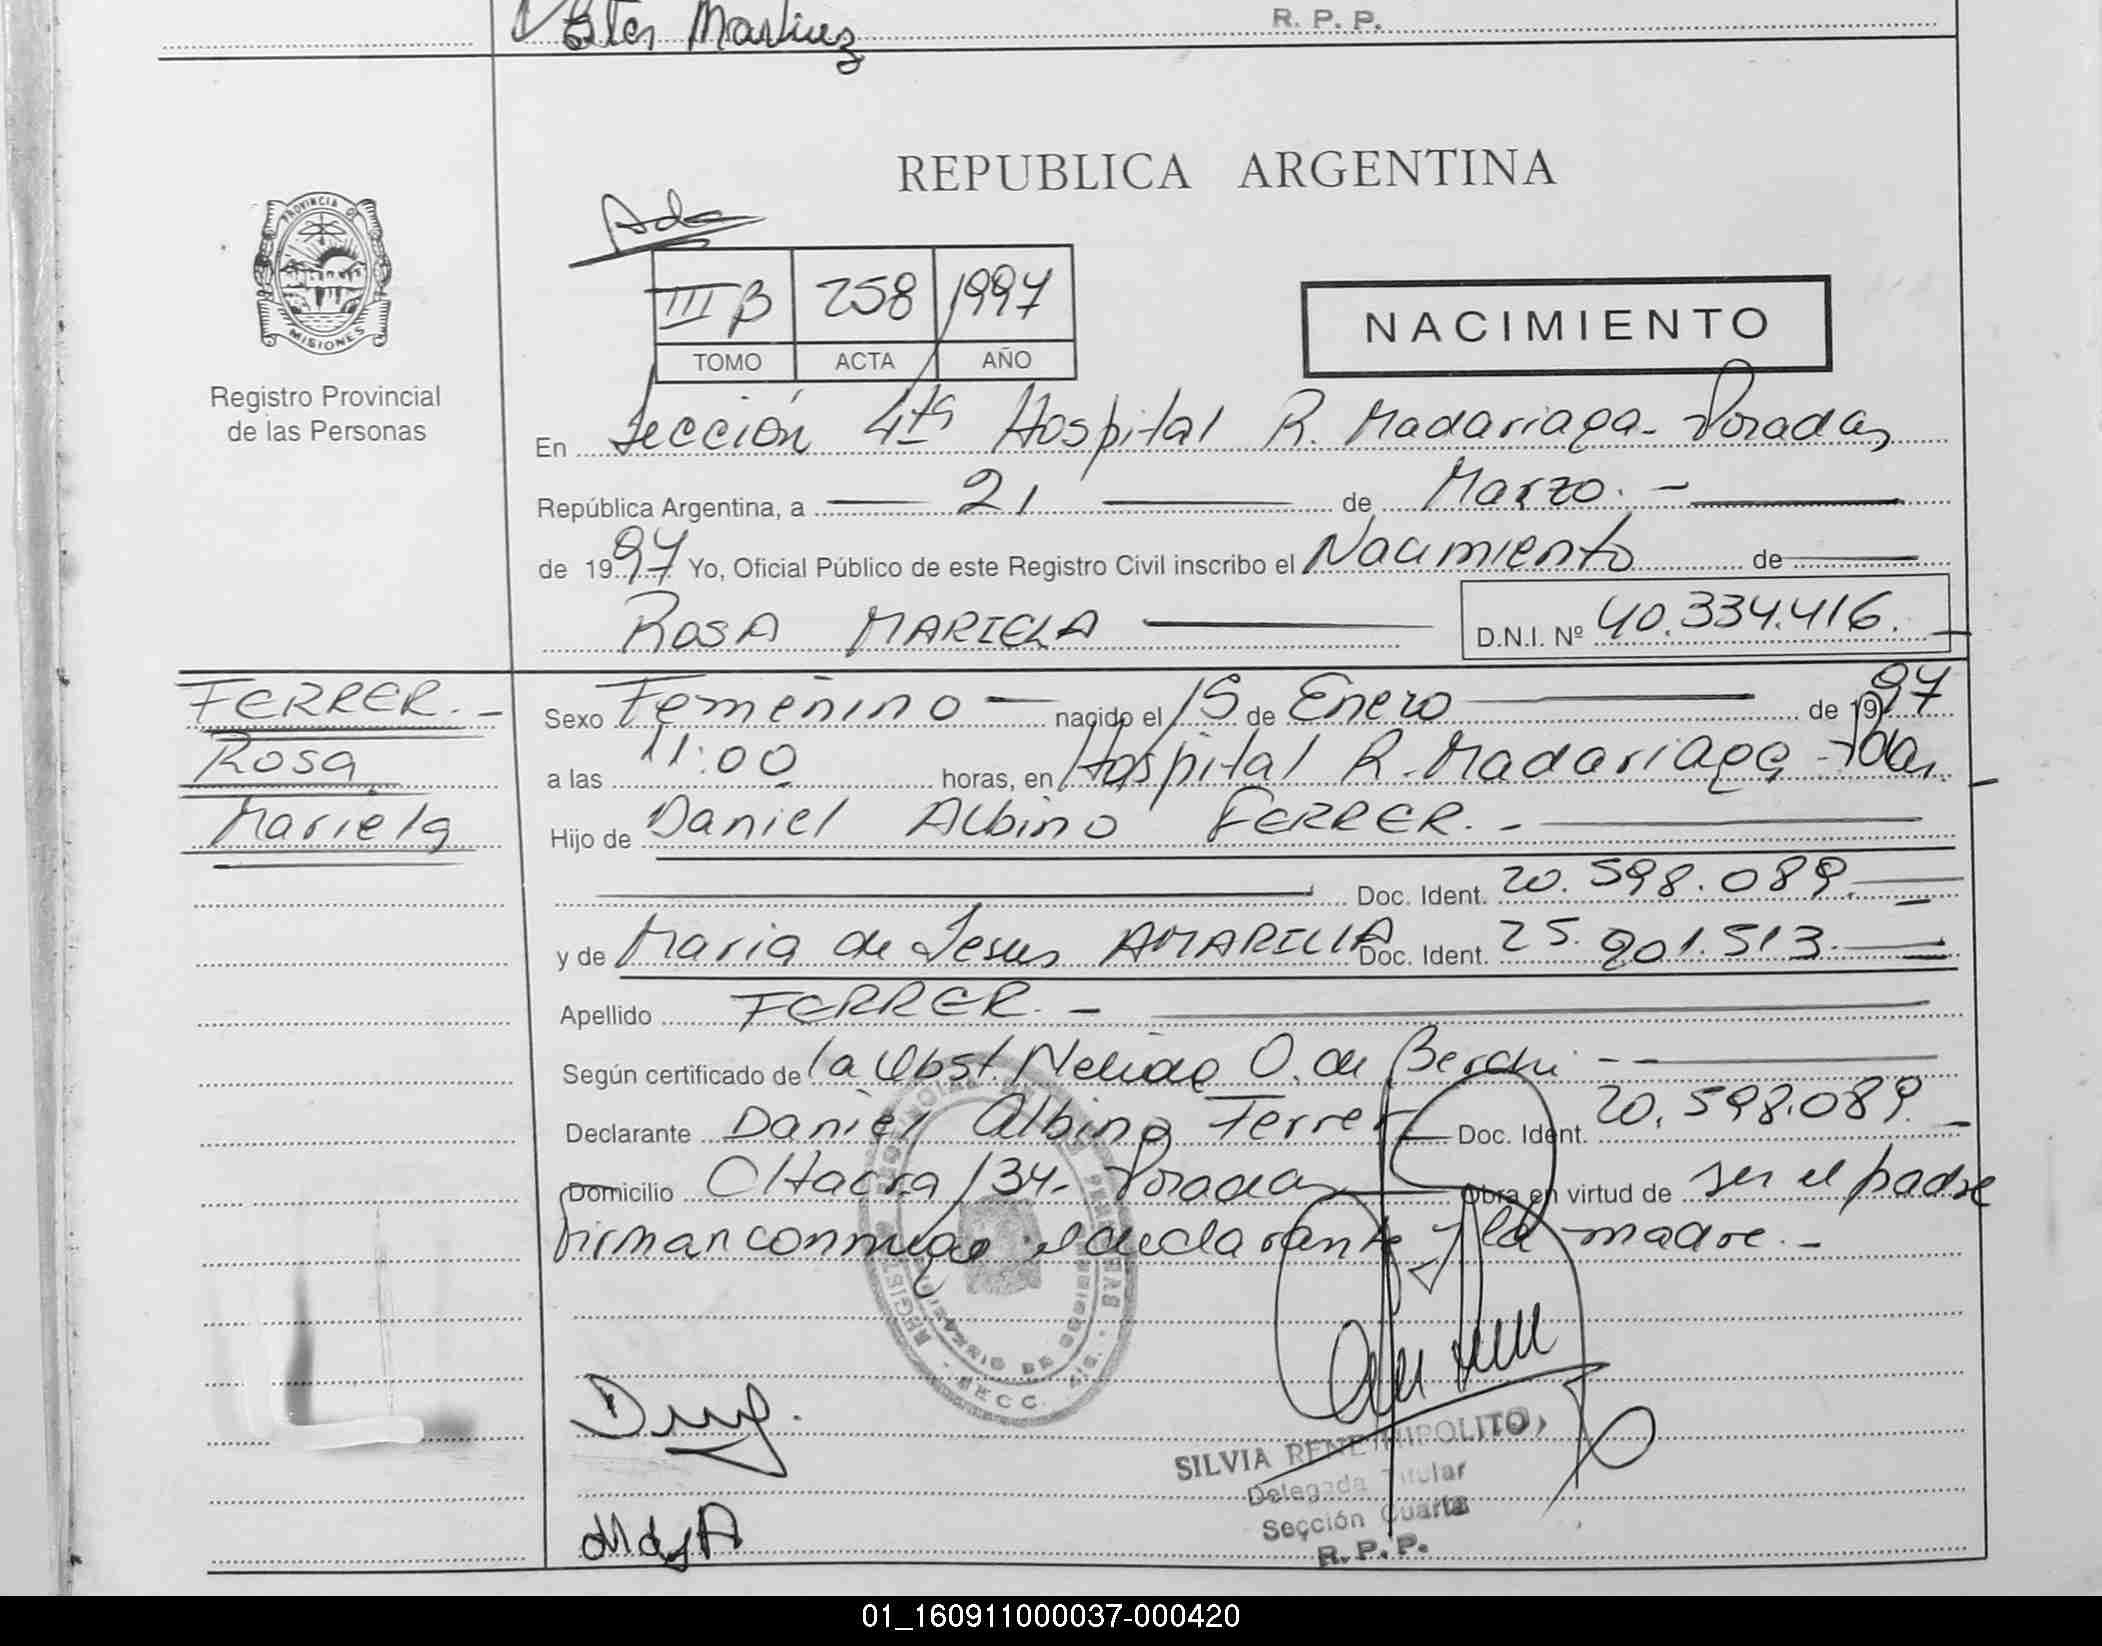 Ester Martinez
R. P. P.
REPUBLICA ARGENTINA
PROVINCIA DE
MISIONES
Registro Provincial
de las Personas
III B 258 1997
TOMO ACTA AÑO
NACIMIENTO
En Sección 4ta Hospital R. Madariaga - Posadas
República Argentina, a 21 de Marzo. -
de 1997 Yo, Oficial Público de este Registro Civil inscribo el Nacimiento de
ROSA MARIELA D.N.I. Nº 40.334.416.
FERRER. -
Rosa
Mariela
Sexo Femenino nacido el 15 de Enero de 1997
a las 11:00 horas, en Hospital R. Madariaga - Pdas.
Hijo de Daniel Albino FERRER. -
Doc. Ident. 20.598.089.
y de Maria de Jesus AMARILLA Doc. Ident. 25.901.513.
Apellido FERRER. -
Según certificado de la Obst. Nelida O. de
Declarante Daniel Albino Ferrer Doc. Ident. 20.598.089. -
Domicilio Chacra 134 - Posadas Obra en virtud de ser el padre
firman conmigo el declarante y la madre. -
SILVIA RENE HIPOLITO
Delegada Titular
Sección Cuarta
R. P. P.
01_160911000037-000420